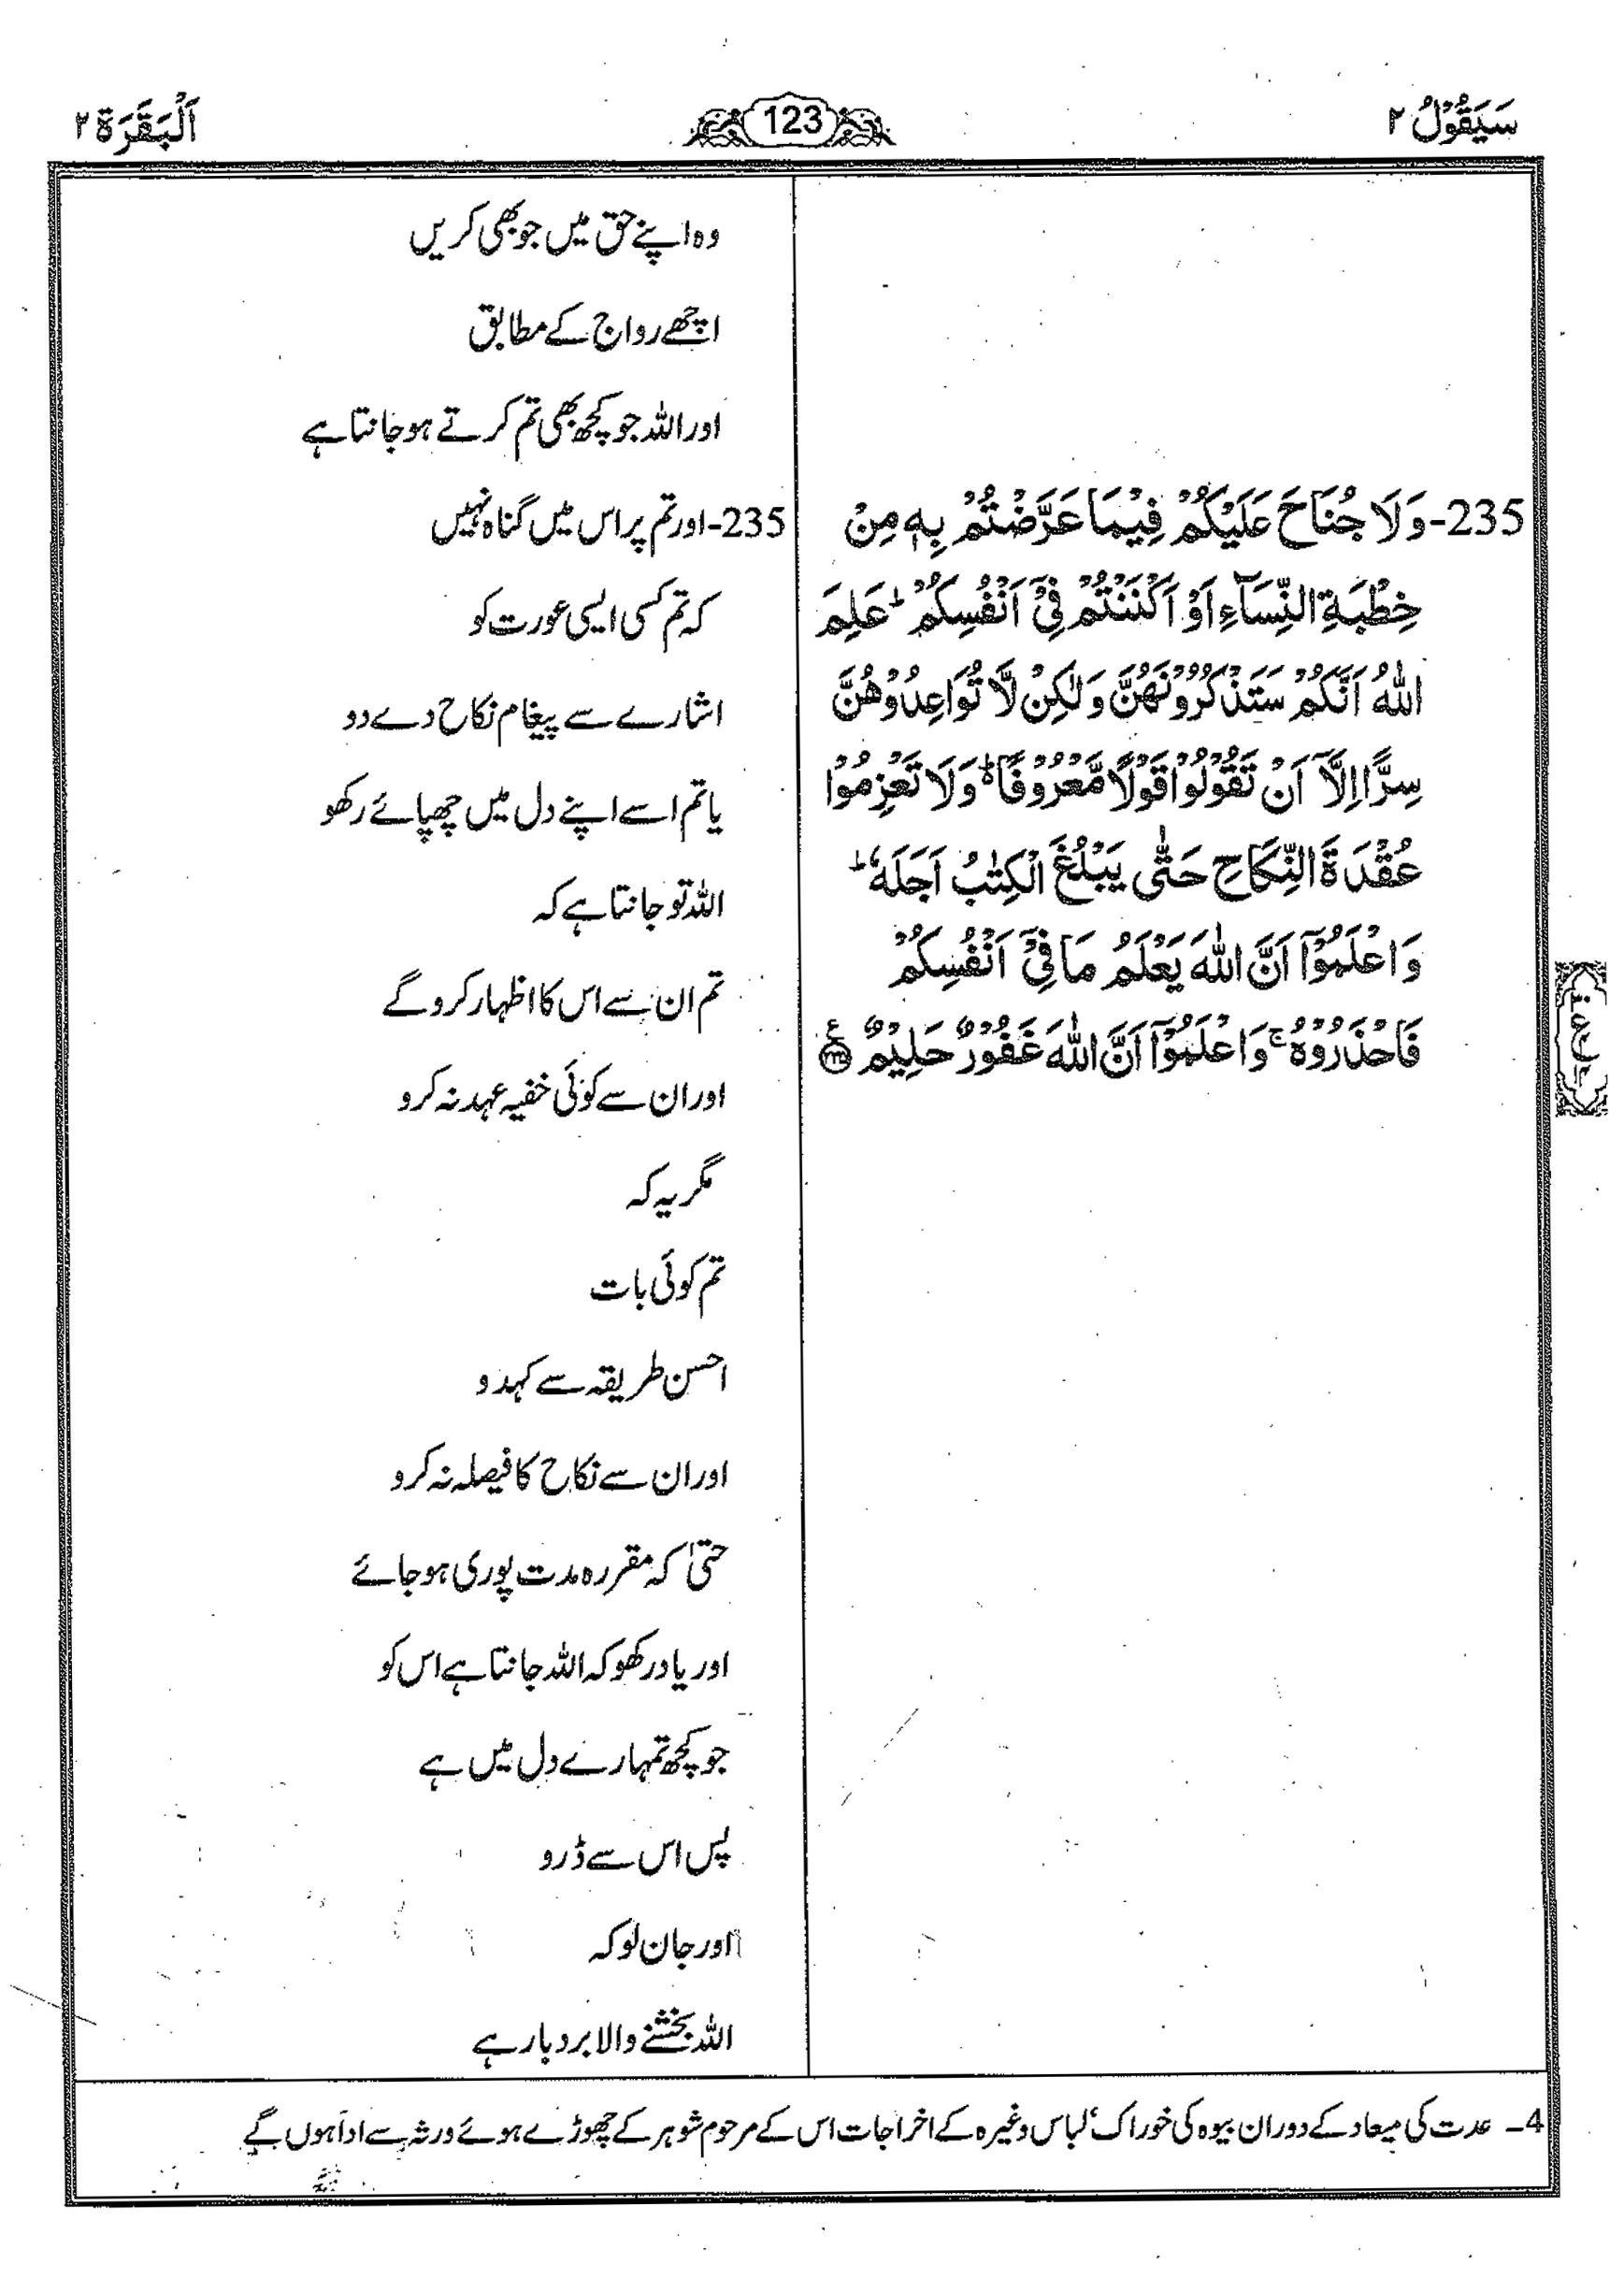 سَيَقُوْلُ ۲
123
اَلْبَقَرَة ۲
235-وَلَا جُنَاحَ عَلَيْكُمْ فِيْمَا عَرَّضْتُمْ بِهٖ مِنْ
خِطْبَةِ النِّسَآءِ اَوْ اَكْنَنْتُمْ فِيْٓ اَنْفُسِكُمْ ؕ عَلِمَ
اللّٰهُ اَنَّكُمْ سَتَذْكُرُوْنَهُنَّ وَلٰكِنْ لَّا تُوَاعِدُوْهُنَّ
سِرًّا اِلَّآ اَنْ تَقُوْلُوْا قَوْلًا مَّعْرُوْفًا ؕ وَلَا تَعْزِمُوْا
عُقْدَةَ النِّكَاحِ حَتّٰى يَبْلُغَ الْكِتٰبُ اَجَلَهٗ ؕ
وَاعْلَمُوْٓا اَنَّ اللّٰهَ يَعْلَمُ مَا فِيْٓ اَنْفُسِكُمْ
فَاحْذَرُوْهُ ۚ وَاعْلَمُوْٓا اَنَّ اللّٰهَ غَفُوْرٌ حَلِيْمٌ ﴿۲۳۵﴾ ع
وہ اپنے حق میں جو بھی کریں
اچھے رواج کے مطابق
اور اللہ جو کچھ بھی تم کرتے ہو جانتا ہے
235-اور تم پر اس میں گناہ نہیں
کہ تم کسی ایسی عورت کو
اشارے سے پیغام نکاح دے دو
یا تم اسے اپنے دل میں چھپائے رکھو
اللہ تو جانتا ہے کہ
تم ان سے اس کا اظہار کرو گے
اور ان سے کوئی خفیہ عہد نہ کرو
مگر یہ کہ
تم کوئی بات
احسن طریقہ سے کہدو
اور ان سے نکاح کا فیصلہ نہ کرو
حتیٰ کہ مقررہ مدت پوری ہو جائے
اور یاد رکھو کہ اللہ جانتا ہے اس کو
جو کچھ تمہارے دل میں ہے
پس اس سے ڈرو
اور جان لو کہ
اللہ بخشنے والا بردبار ہے
4۔ عدت کی میعاد کے دوران بیوہ کی خوراک‘ لباس وغیرہ کے اخراجات اس کے مرحوم شوہر کے چھوڑے ہوئے ورثہ سے ادا ہوں گے